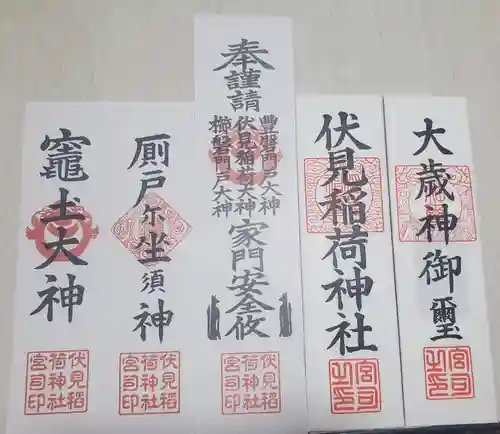 大歳神御璽
宮司
之印
伏見稲荷神社
宮司
之印
奉謹請
豊磐門戸大神
伏見稲荷大神
櫛磐門戸大神
家門安全攸
伏見稲
荷神社
宮司印
厠戸尓坐須神
伏見稲
荷神社
宮司印
竈圡大神
伏見稲
荷神社
宮司印